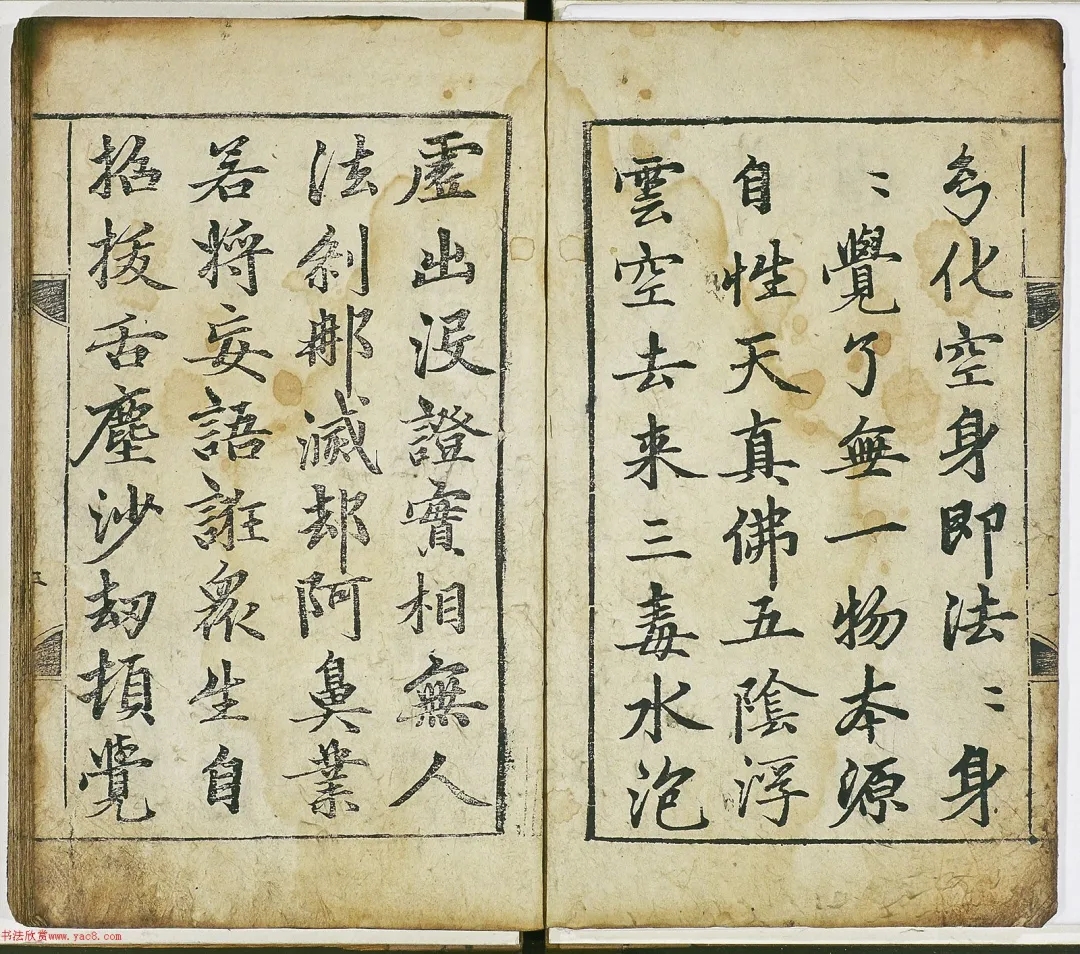 幻化空身即法〻身
〻覺了無一物本源
自性天真佛五陰浮
雲空去来三毒水泡
虗出没證實相無人
法刹那滅却阿鼻業
若将妄語誑衆生自
招拔舌塵沙劫頓覺
书法欣赏www.yac8.com